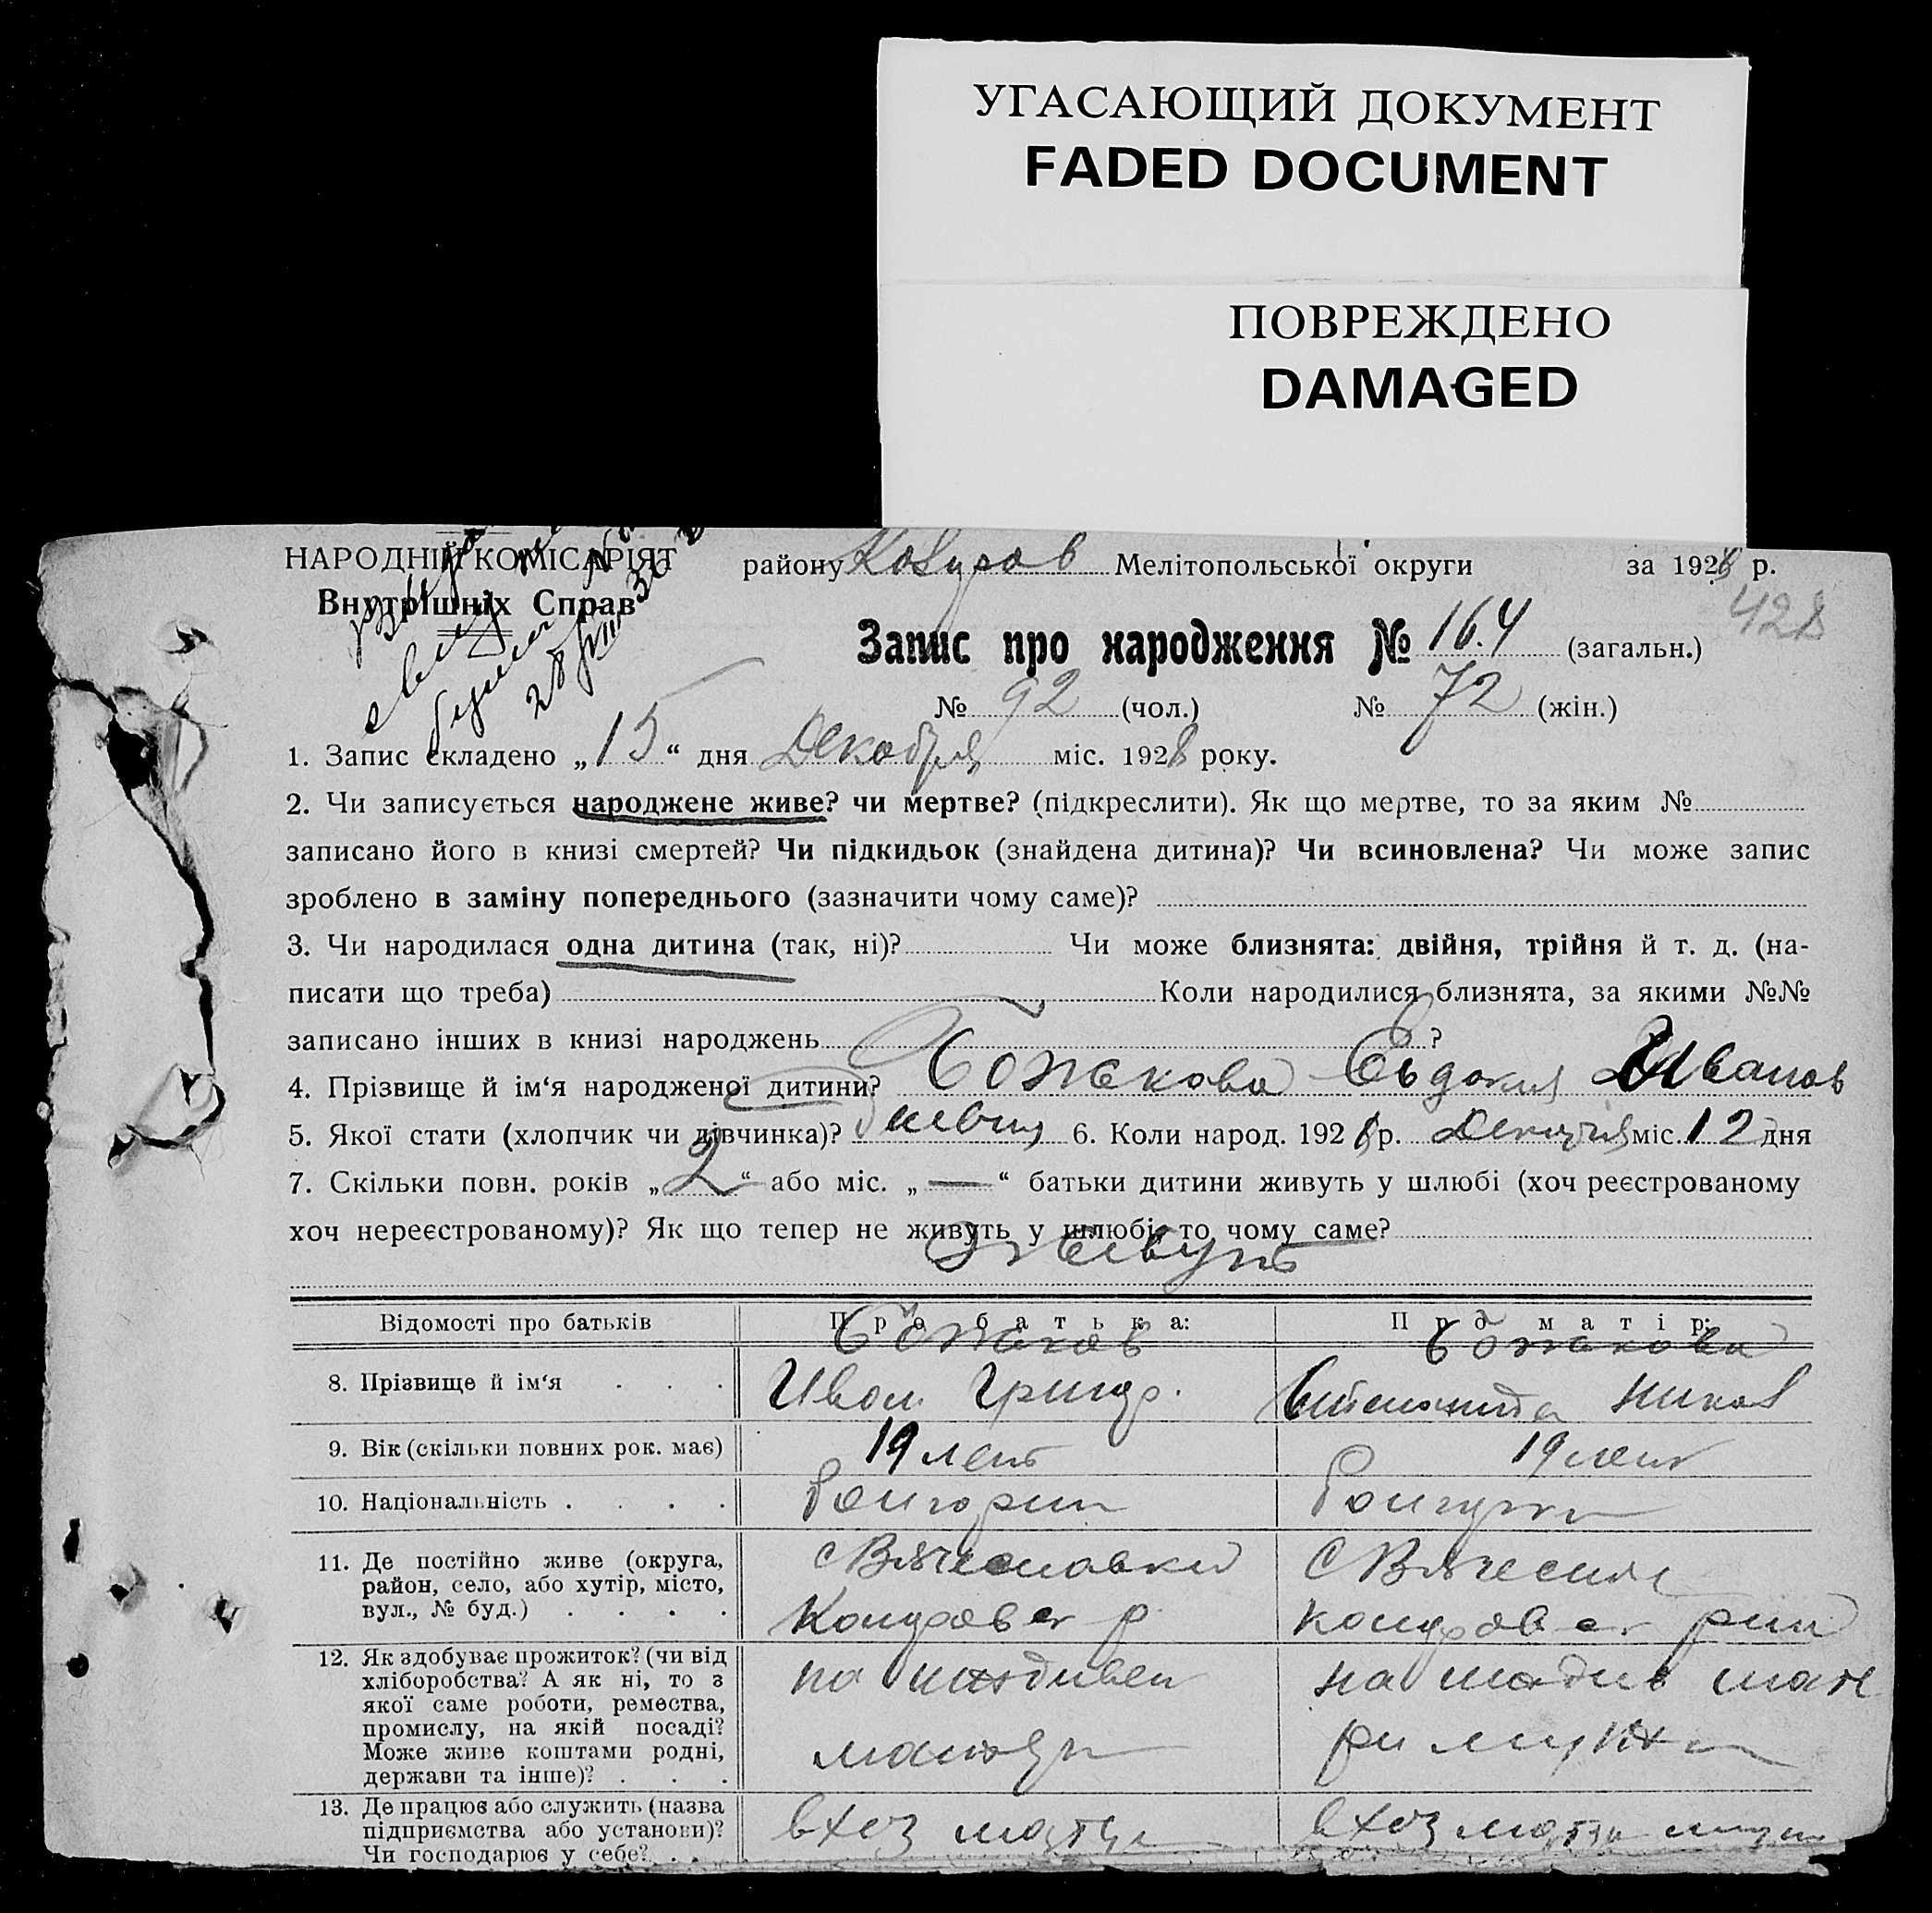 УГАСАЮЩИЙ ДОКУМЕНТ
FADED DOCUMENT
ПОВРЕЖДЕНО
DAMAGED
НАРОДНІЙ КОМІСАРІЯТ
Внутрішніх Справ
району Мелітопольської округи за 1928 р.
428
Запис про народження № 164 (загальн.)
№ 92 (чол.) № 72 (жін.)
1. Запис складено „15“ дня Декабря міс. 1928 року.
2. Чи записується народжене живе? чи мертве? (підкреслити). Як що мертве, то за яким №
записано його в книзі смертей? Чи підкидьок (знайдена дитина)? Чи всиновлена? Чи може запис
зроблено в заміну попереднього (зазначити чому саме)?
3. Чи народилася одна дитина (так, ні)? Чи може близнята: двійня, трійня й т. д. (на-
писати що треба) Коли народилися близнята, за якими №№
записано інших в книзі народжень ?
4. Прізвище й ім‘я народженої дитини? Божкова Евдокия Иванов
5. Якої стати (хлопчик чи дівчинка)? 6. Коли народ. 1928 р. Декабря міс. 12 дня
7. Скільки повн. років „2“ або міс. „—“ батьки дитини живуть у шлюбі (хоч реєстрованому
хоч нереєстрованому)? Як що тепер не живуть у шлюбі, то чому саме?
живут
Відомості про батьків Про батька: Про матір:
Божков Божкова
8. Прізвище й ім‘я . . . Иван Григор.
9. Вік (скільки повних рок. має) 19 лет 19 лет
10. Національність . . . . Болгарин Болгарка
11. Де постійно живе (округа, с Вячеславки с Вячеслав
район, село, або хутір, місто,
вул., № буд.) . . . .
12. Як здобуває прожиток? (чи від
хліборобства? А як ні, то з
якої саме роботи, ремества,
промислу, на якій посаді?
Може живе коштами родні,
держави та інше)? . . .
13. Де працює або служить (назва в хоз матери в хоз матери мужа
підприємства або установи)?
Чи господарює у себе? . .